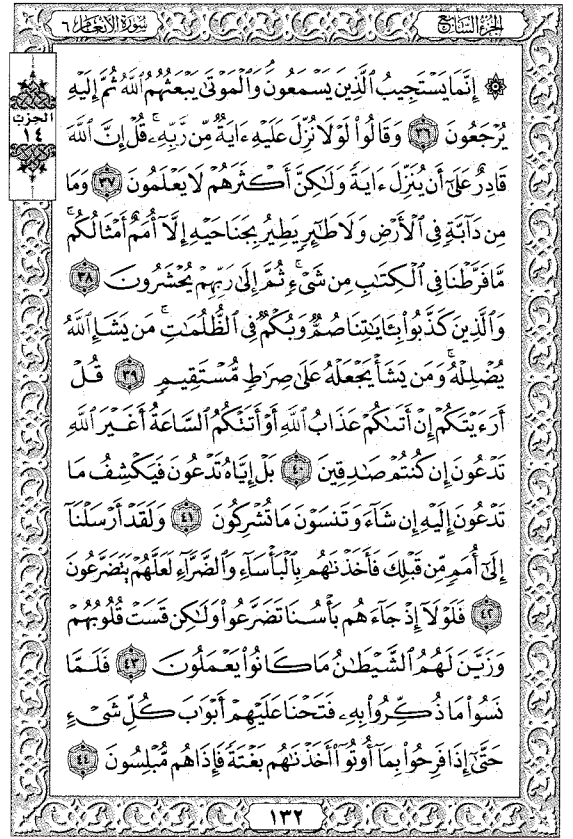 سورة الأنعام ٦
الجزء السابع
الحزب
١٤
۞ إِنَّمَا يَسْتَجِيبُ ٱلَّذِينَ يَسْمَعُونَ وَٱلْمَوْتَىٰ يَبْعَثُهُمُ ٱللَّهُ ثُمَّ إِلَيْهِ
يُرْجَعُونَ ٣٦ وَقَالُوا۟ لَوْلَا نُزِّلَ عَلَيْهِ ءَايَةٌ مِّن رَّبِّهِۦ قُلْ إِنَّ ٱللَّهَ
قَادِرٌ عَلَىٰٓ أَن يُنَزِّلَ ءَايَةً وَلَـٰكِنَّ أَكْثَرَهُمْ لَا يَعْلَمُونَ ٣٧ وَمَا
مِن دَآبَّةٍ فِى ٱلْأَرْضِ وَلَا طَـٰٓئِرٍ يَطِيرُ بِجَنَاحَيْهِ إِلَّآ أُمَمٌ أَمْثَالُكُم
مَّا فَرَّطْنَا فِى ٱلْكِتَـٰبِ مِن شَىْءٍ ثُمَّ إِلَىٰ رَبِّهِمْ يُحْشَرُونَ ٣٨
وَٱلَّذِينَ كَذَّبُوا۟ بِـَٔايَـٰتِنَا صُمٌّ وَبُكْمٌ فِى ٱلظُّلُمَـٰتِ مَن يَشَإِ ٱللَّهُ
يُضْلِلْهُ وَمَن يَشَأْ يَجْعَلْهُ عَلَىٰ صِرَٰطٍ مُّسْتَقِيمٍ ٣٩ قُلْ
أَرَءَيْتَكُمْ إِنْ أَتَىٰكُمْ عَذَابُ ٱللَّهِ أَوْ أَتَتْكُمُ ٱلسَّاعَةُ أَغَيْرَ ٱللَّهِ
تَدْعُونَ إِن كُنتُمْ صَـٰدِقِينَ ٤٠ بَلْ إِيَّاهُ تَدْعُونَ فَيَكْشِفُ مَا
تَدْعُونَ إِلَيْهِ إِن شَآءَ وَتَنسَوْنَ مَا تُشْرِكُونَ ٤١ وَلَقَدْ أَرْسَلْنَآ
إِلَىٰٓ أُمَمٍ مِّن قَبْلِكَ فَأَخَذْنَـٰهُم بِٱلْبَأْسَآءِ وَٱلضَّرَّآءِ لَعَلَّهُمْ يَتَضَرَّعُونَ
٤٢ فَلَوْلَآ إِذْ جَآءَهُم بَأْسُنَا تَضَرَّعُوا۟ وَلَـٰكِن قَسَتْ قُلُوبُهُمْ
وَزَيَّنَ لَهُمُ ٱلشَّيْطَـٰنُ مَا كَانُوا۟ يَعْمَلُونَ ٤٣ فَلَمَّا
نَسُوا۟ مَا ذُكِّرُوا۟ بِهِۦ فَتَحْنَا عَلَيْهِمْ أَبْوَٰبَ كُلِّ شَىْءٍ
حَتَّىٰٓ إِذَا فَرِحُوا۟ بِمَآ أُوتُوٓا۟ أَخَذْنَـٰهُم بَغْتَةً فَإِذَا هُم مُّبْلِسُونَ ٤٤
١٣٢